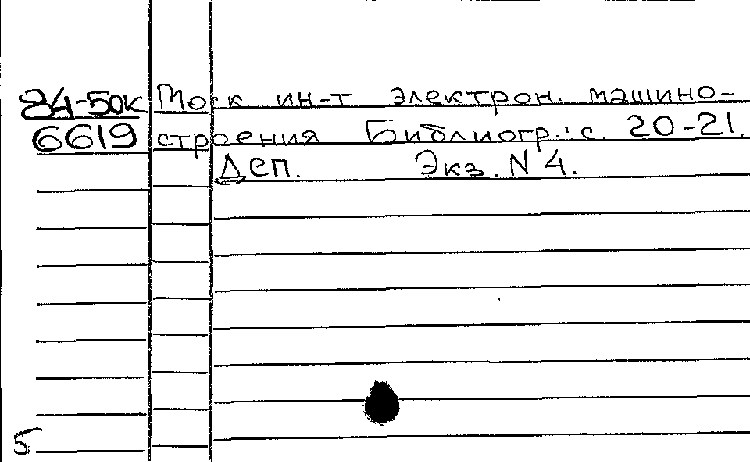 84-50к Моск ин-т электрон. машино-
6619 строения Библиогр.: с. 20-21.
Деп. Экз. N 4.
5